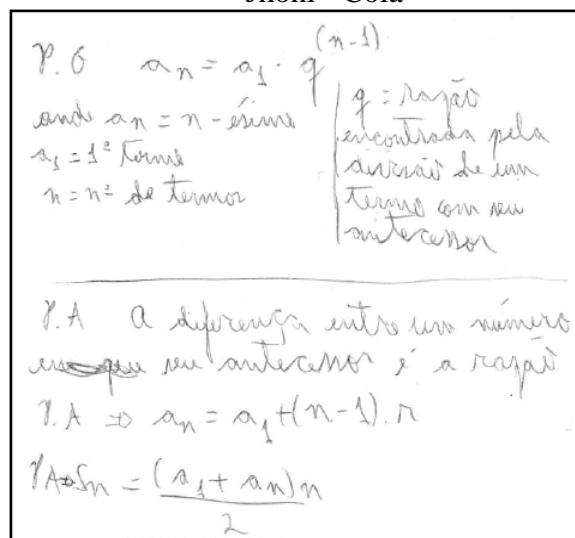 Jhoni - Cola
P.G an = a1 . q^(n-1)
onde an = n - ésimo
a1 = 1º termo
n = nº de termos
q = razão
encontrada pela
divisão de um
termo com seu
antecessor
P.A A diferença entre um número
e seu antecessor é a razão
P.A ⇒ an = a1 + (n-1).r
PA Sn = (a1 + an)n
2